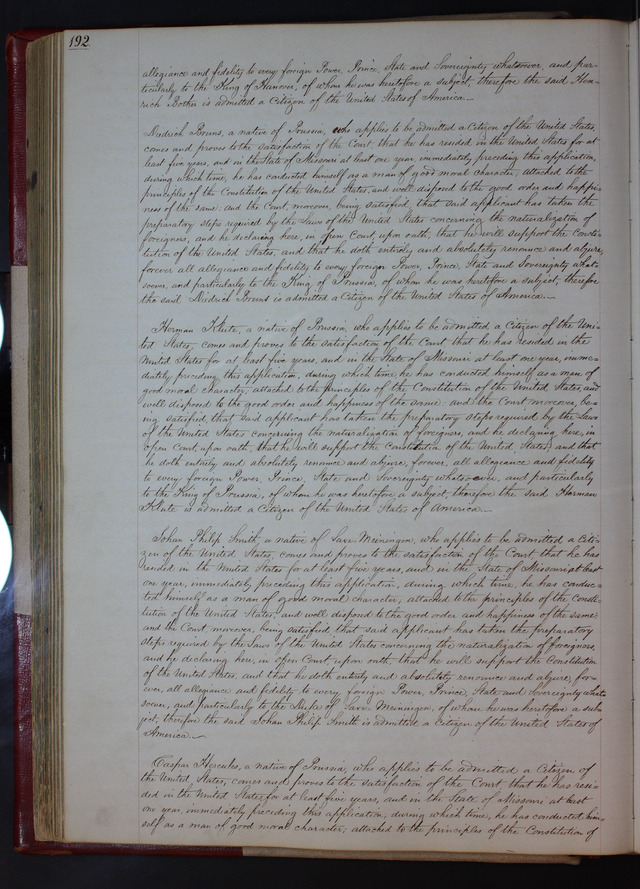 192.
allegiance and fidelity to every foreign Power, Prince, State and Sovereignty whatsoever, and par-
ticularly to the King of Hanover, of whom he was heretofore a subject, therefore the said Hen-
rich Bothen is admitted a Citizen of the United States of America.—
Diedrich Bruns, a native of Prussia, who applies to be admitted a Citizen of the United States,
comes and proves to the satisfaction of the Court that he has resided in the United States for at
least five years, and in the State of Missouri at least one year immediately preceding this application,
during which time, he has conducted himself as a man of good moral character, attached to the
principles of the Constitution of the United States, and well disposed to the good order and happi-
ness of the same: and the Court, moreover, being satisfied, that said applicant has taken the
preparatory steps required by the Laws of the United States concerning the naturalization of
foreigners, and he declaring here, in Open Court, upon oath, that he will support the Consti-
tution of the United States, and that he doth entirely and absolutely renounce and abjure,
forever all allegiance and fidelity to every foreign Power, Prince, State and Sovereignty whats-
soever, and particularly to the King of Prussia, of whom he was heretofore a subject, therefore
the said Diedrich Bruns is admitted a Citizen of the United States of America.—
Herman Klute, a native of Prussia, who applies to be admitted a Citizen of the Uni-
ted States, comes and proves to the satisfaction of the Court that he has resided in the
United States for at least five years, and in the State of Missouri at least one year, imme-
diately preceding this application, during which time he has conducted himself as a man of
good moral character, attached to the principles of the Constitution of the United States, and
well disposed to the good order and happiness of the same: and the Court moreover, be-
ing satisfied, that said applicant has taken the preparatory steps required by the Laws
of the United States concerning the naturalization of foreigners, and he declaring here, in
Open Court, upon oath, that he will support the Constitution of the United States, and that
he doth entirely and absolutely renounce and abjure, forever, all allegiance and fidelity
to every foreign Power, Prince, State and Sovereignty whatsoever, and particularly
to the King of Prussia, of whom he was heretofore a subject, therefore the said Herman
Klute is admitted a Citizen of the United States of America.—
Johan Philip Smith, a native of Saxe Meiningen, who applies to be admitted a Citi-
zen of the United States, comes and proves to the satisfaction of the Court that he has
resided in the United States for at least five years, and in the State of Missouri at least
one year, immediately preceding this application, during which time, he has conduc-
ted himself as a man of good moral character, attached to the principles of the Consti-
tution of the United States, and well disposed to the good order and happiness of the same:
and the Court, moreover being satisfied, that said applicant has taken the preparatory
steps required by the Laws of the United States concerning the naturalization of foreigners,
and he declaring here, in open Court upon oath, that he will support the Constitution
of the United States, and that he doth entirely and absolutely renounce and abjure, for-
ever, all allegiance and fidelity to every foreign Power, Prince, State and Sovereignty whats
soever, and particularly to the Duke of Saxe Meiningen, of whom he was heretofore a sub-
ject, therefore the said Johan Philip Smith is admitted a Citizen of the United States of
America.—
Caspar Hercules, a native of Prussia, who applies to be admitted a Citizen of
the United States, comes and proves to the satisfaction of the Court that he has resi-
ded in the United States for at least five years, and in the State of Missouri at least
one year, immediately preceding this application, during which time, he has conducted him-
self as a man of good moral character, attached to the principles of the Constitution of